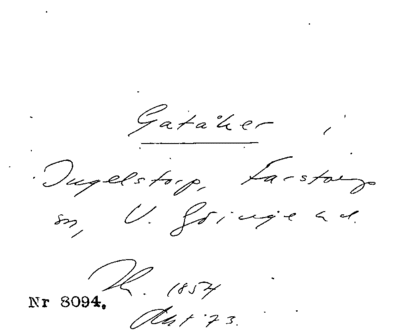 Gatåker i
Ingelstorp, Farstorps
sn, V. Göinge hd.
Th. 1854
Akt 73.
Nr 8094.